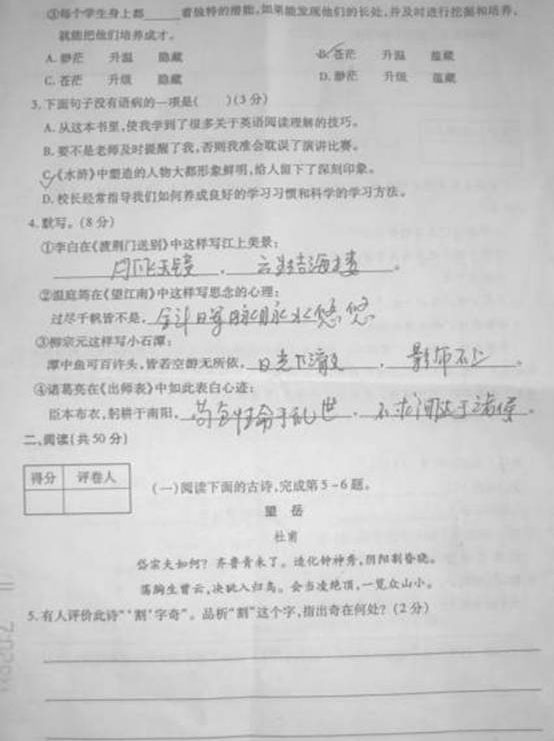 ③每个学生身上都______着独特的潜能,如果能发现他们的长处,并及时进行挖掘和培养,
就能把他们培养成才。
A. 渺茫 升温 隐藏 B. 苍茫 升温 蕴藏
C. 苍茫 升级 隐藏 D. 渺茫 升级 蕴藏
3. 下面句子没有语病的一项是( )(3分)
A. 从这本书里,使我学到了很多关于英语阅读理解的技巧。
B. 要不是老师及时提醒了我,否则我准会耽误了演讲比赛。
C.《水浒》中塑造的人物大都形象鲜明,给人留下了深刻印象。
D. 校长经常指导我们如何养成良好的学习习惯和科学的学习方法。
4. 默写。(8分)
①李白在《渡荆门送别》中这样写江上美景:
月下飞天镜,云生结海楼。
②温庭筠在《望江南》中这样写思念的心理:
过尽千帆皆不是,斜日军脉脉水悠悠
③柳宗元这样写小石潭:
潭中鱼可百许头,皆若空游无所依,日光下澈,影布石上。
④诸葛亮在《出师表》中如此表白心迹:
臣本布衣,躬耕于南阳,苟全性命于乱世,不求闻达于诸侯。
二、阅读(共50分)
得分 评卷人
(一)阅读下面的古诗,完成第5-6题。
望 岳
杜甫
岱宗夫如何?齐鲁青未了。造化钟神秀,阴阳割昏晓。
荡胸生曾云,决眦入归鸟。会当凌绝顶,一览众山小。
5. 有人评价此诗“‘割’字奇”。品析“割”这个字,指出奇在何处?(2分)